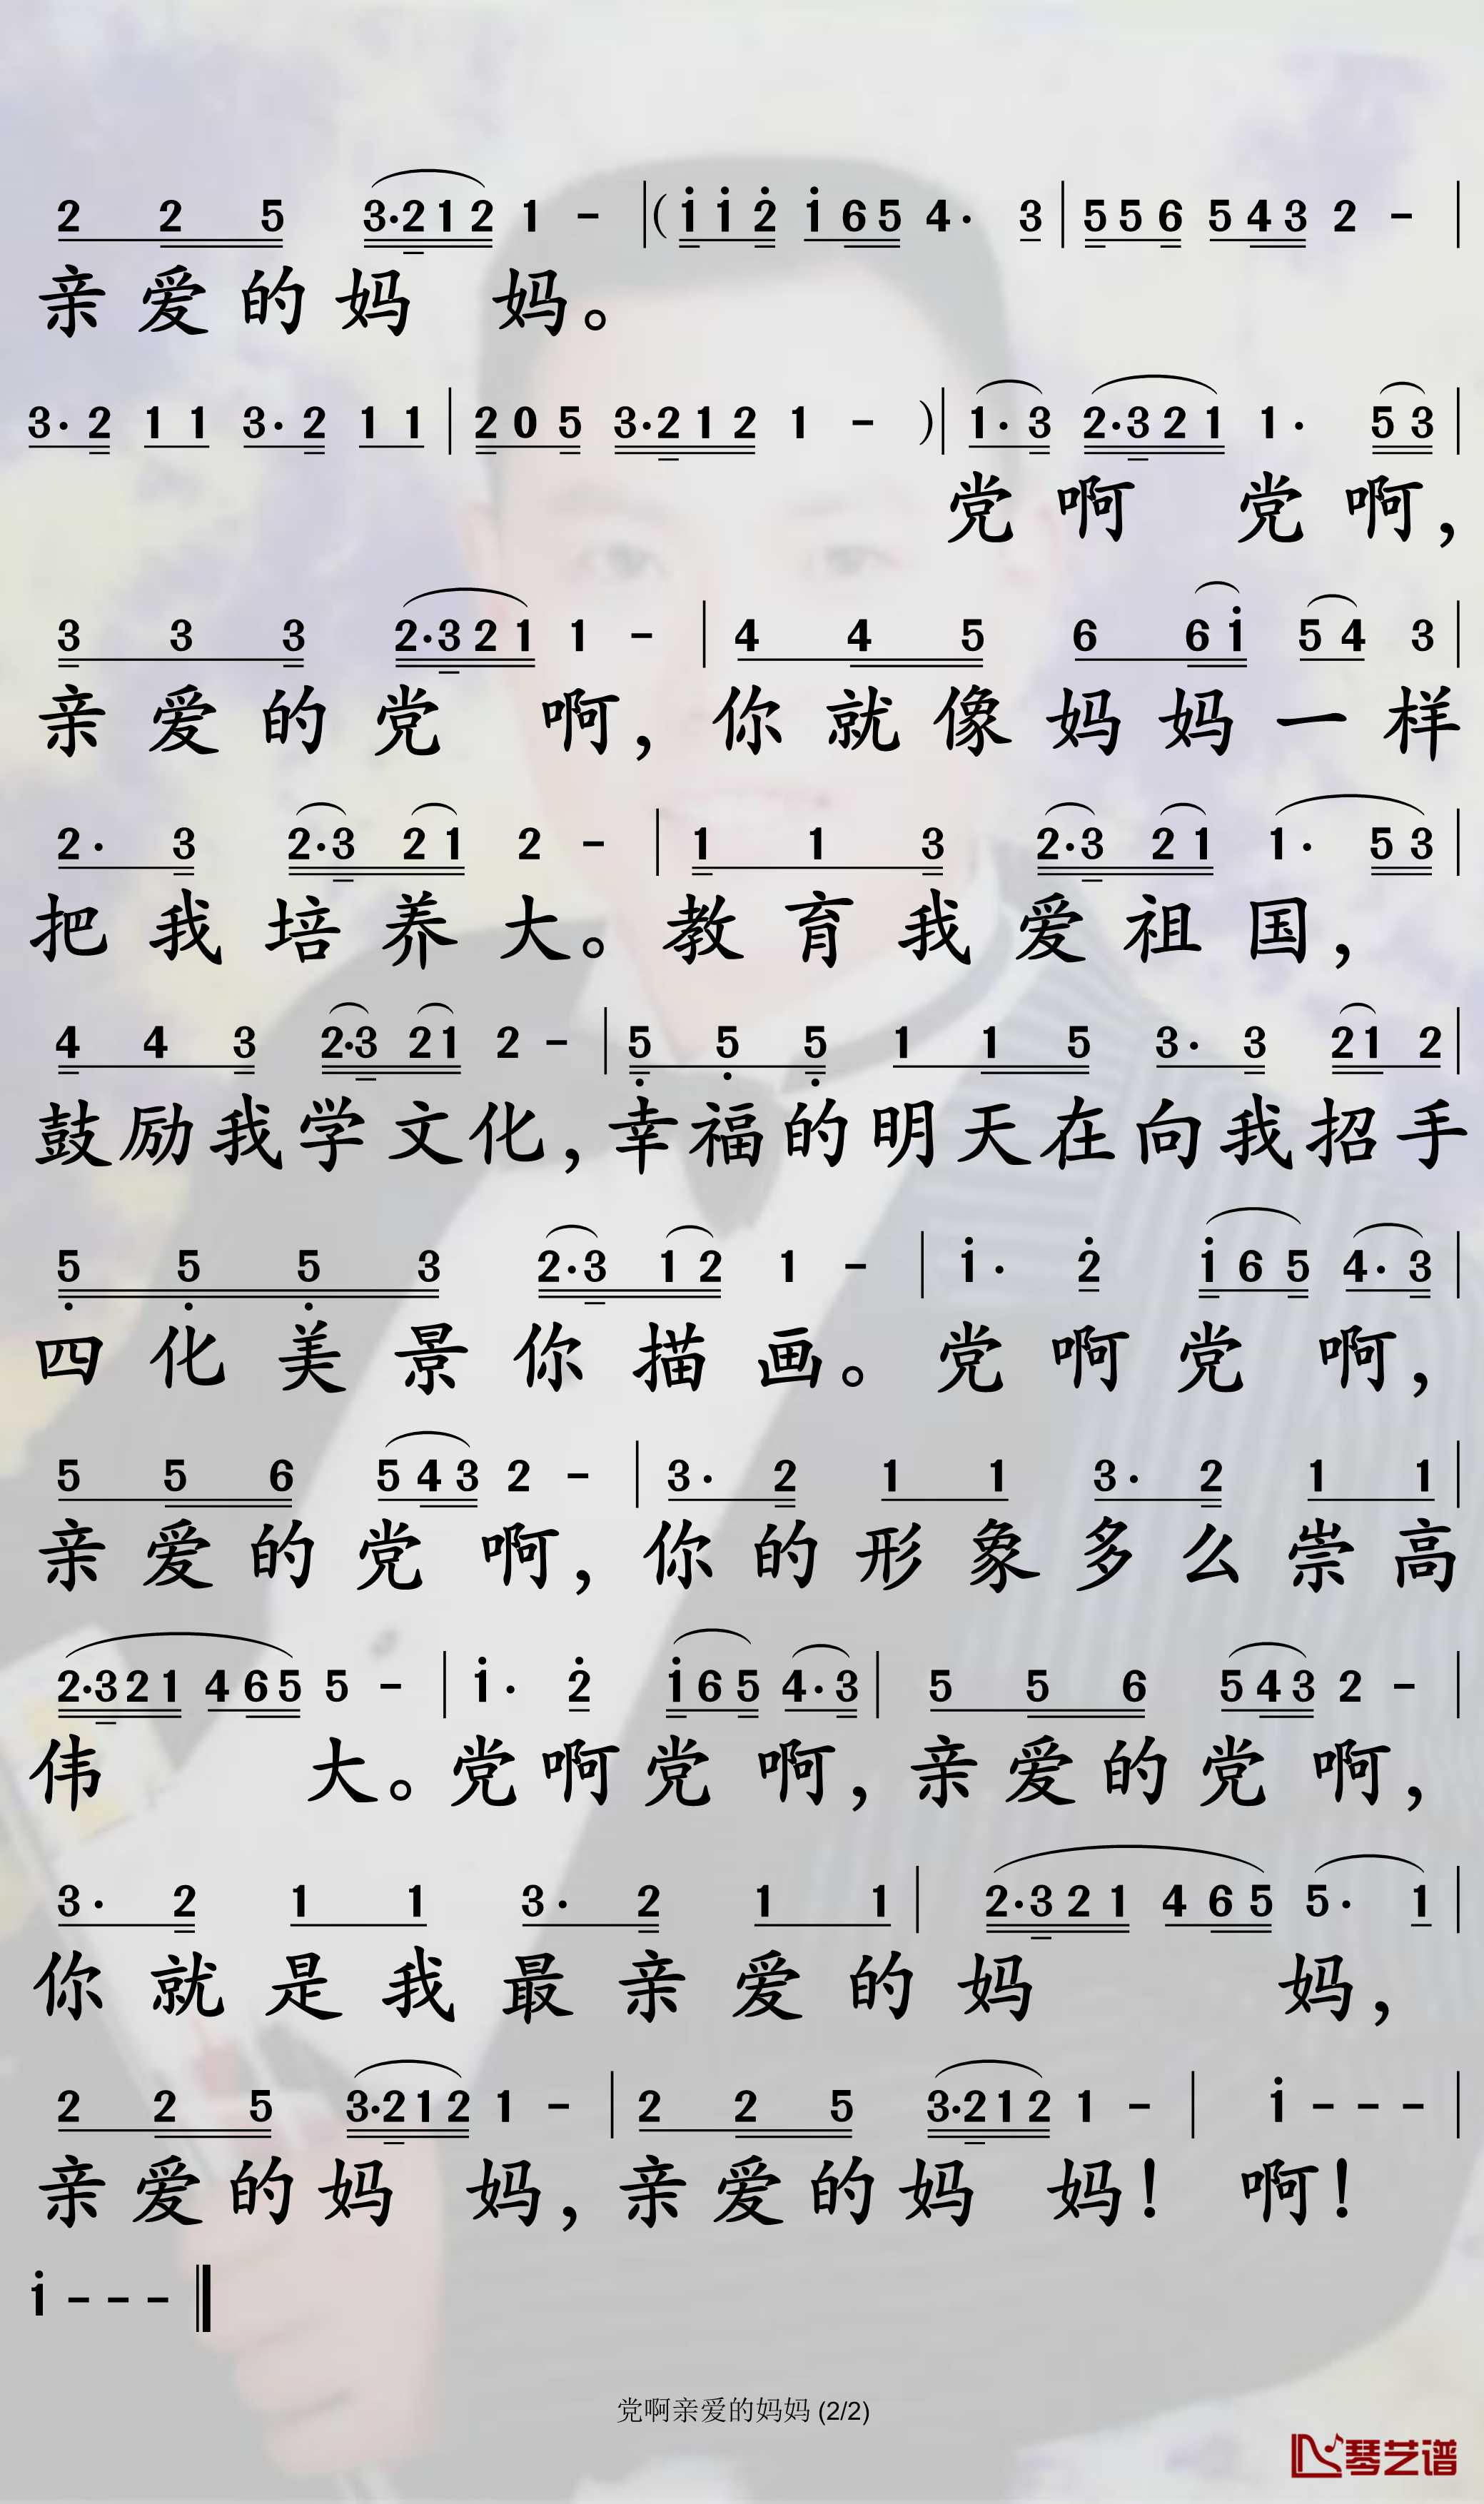 2 2 5 3·2 1 2 1 - | ( i i 2 i 6 5 4· 3 | 5 5 6 5 4 3 2 - |
亲爱的妈 妈。
3· 2 1 1 3· 2 1 1 | 2 0 5 3·2 1 2 1 - ) | 1· 3 2·3 2 1 1· 5 3 |
党啊 党啊，
3 3 3 2·3 2 1 1 - | 4 4 5 6 6 i 5 4 3 |
亲爱的党 啊，你就像妈妈一样
2· 3 2·3 2 1 2 - | 1 1 3 2·3 2 1 1· 5 3 |
把我培养大。教育我爱祖国，
4 4 3 2·3 2 1 2 - | 5 5 5 1 1 5 3· 3 2 1 2 |
鼓励我学文化，幸福的明天在向我招手
5 5 5 3 2·3 1 2 1 - | i· 2 i 6 5 4· 3 |
四化美景你描画。党啊党啊，
5 5 6 5 4 3 2 - | 3· 2 1 1 3· 2 1 1 |
亲爱的党啊，你的形象多么崇高
2·3 2 1 4 6 5 5 - | i· 2 i 6 5 4· 3 | 5 5 6 5 4 3 2 - |
伟 大。党啊党啊，亲爱的党啊，
3· 2 1 1 3· 2 1 1 | 2·3 2 1 4 6 5 5· 1 |
你就是我最亲爱的妈 妈，
2 2 5 3·2 1 2 1 - | 2 2 5 3·2 1 2 1 - | i - - - |
亲爱的妈 妈，亲爱的妈 妈！ 啊！
i - - - ‖
党啊亲爱的妈妈 (2/2)
琴艺谱